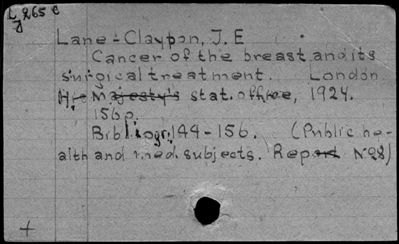 L 265 c
J
Lane-Claypon, J. E
Cancer of the breast and its
surgical treatment. London
Majesty's stat. office, 1924.
156p.
Bibliogr. 144-156. (Public he-
alth and med. subjects. Report No 28)
+